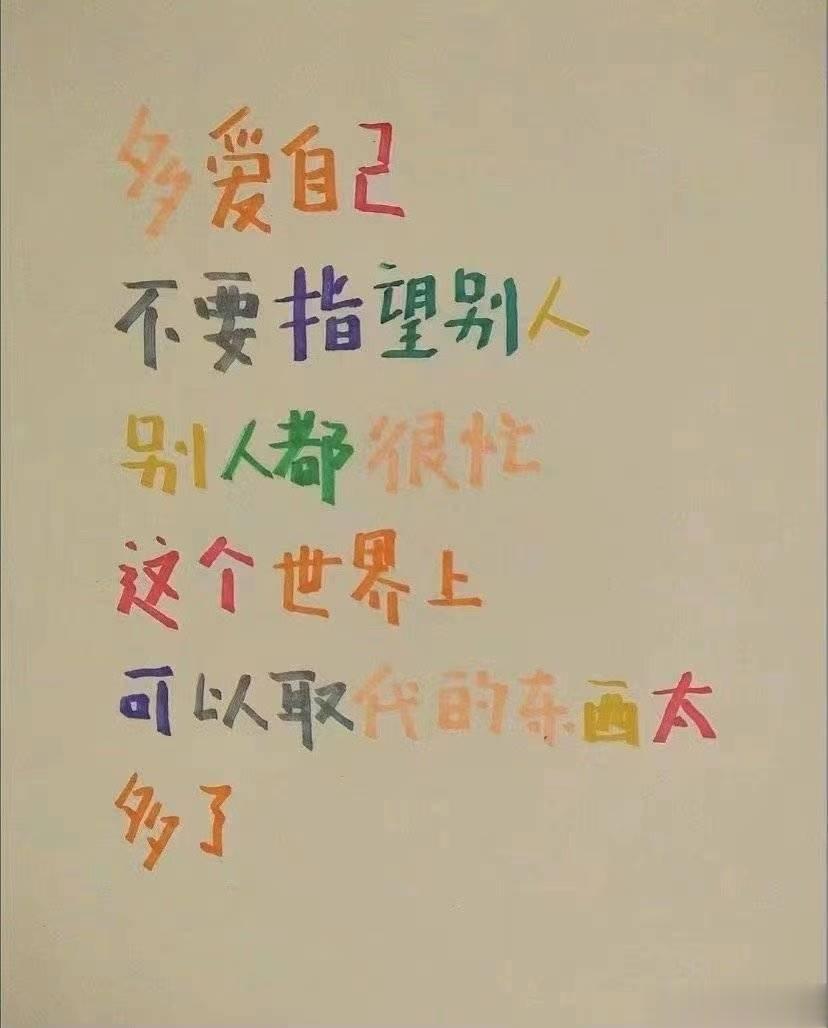 多爱自己
不要指望别人
别人都很忙
这个世界上
可以取代的东西太
多了